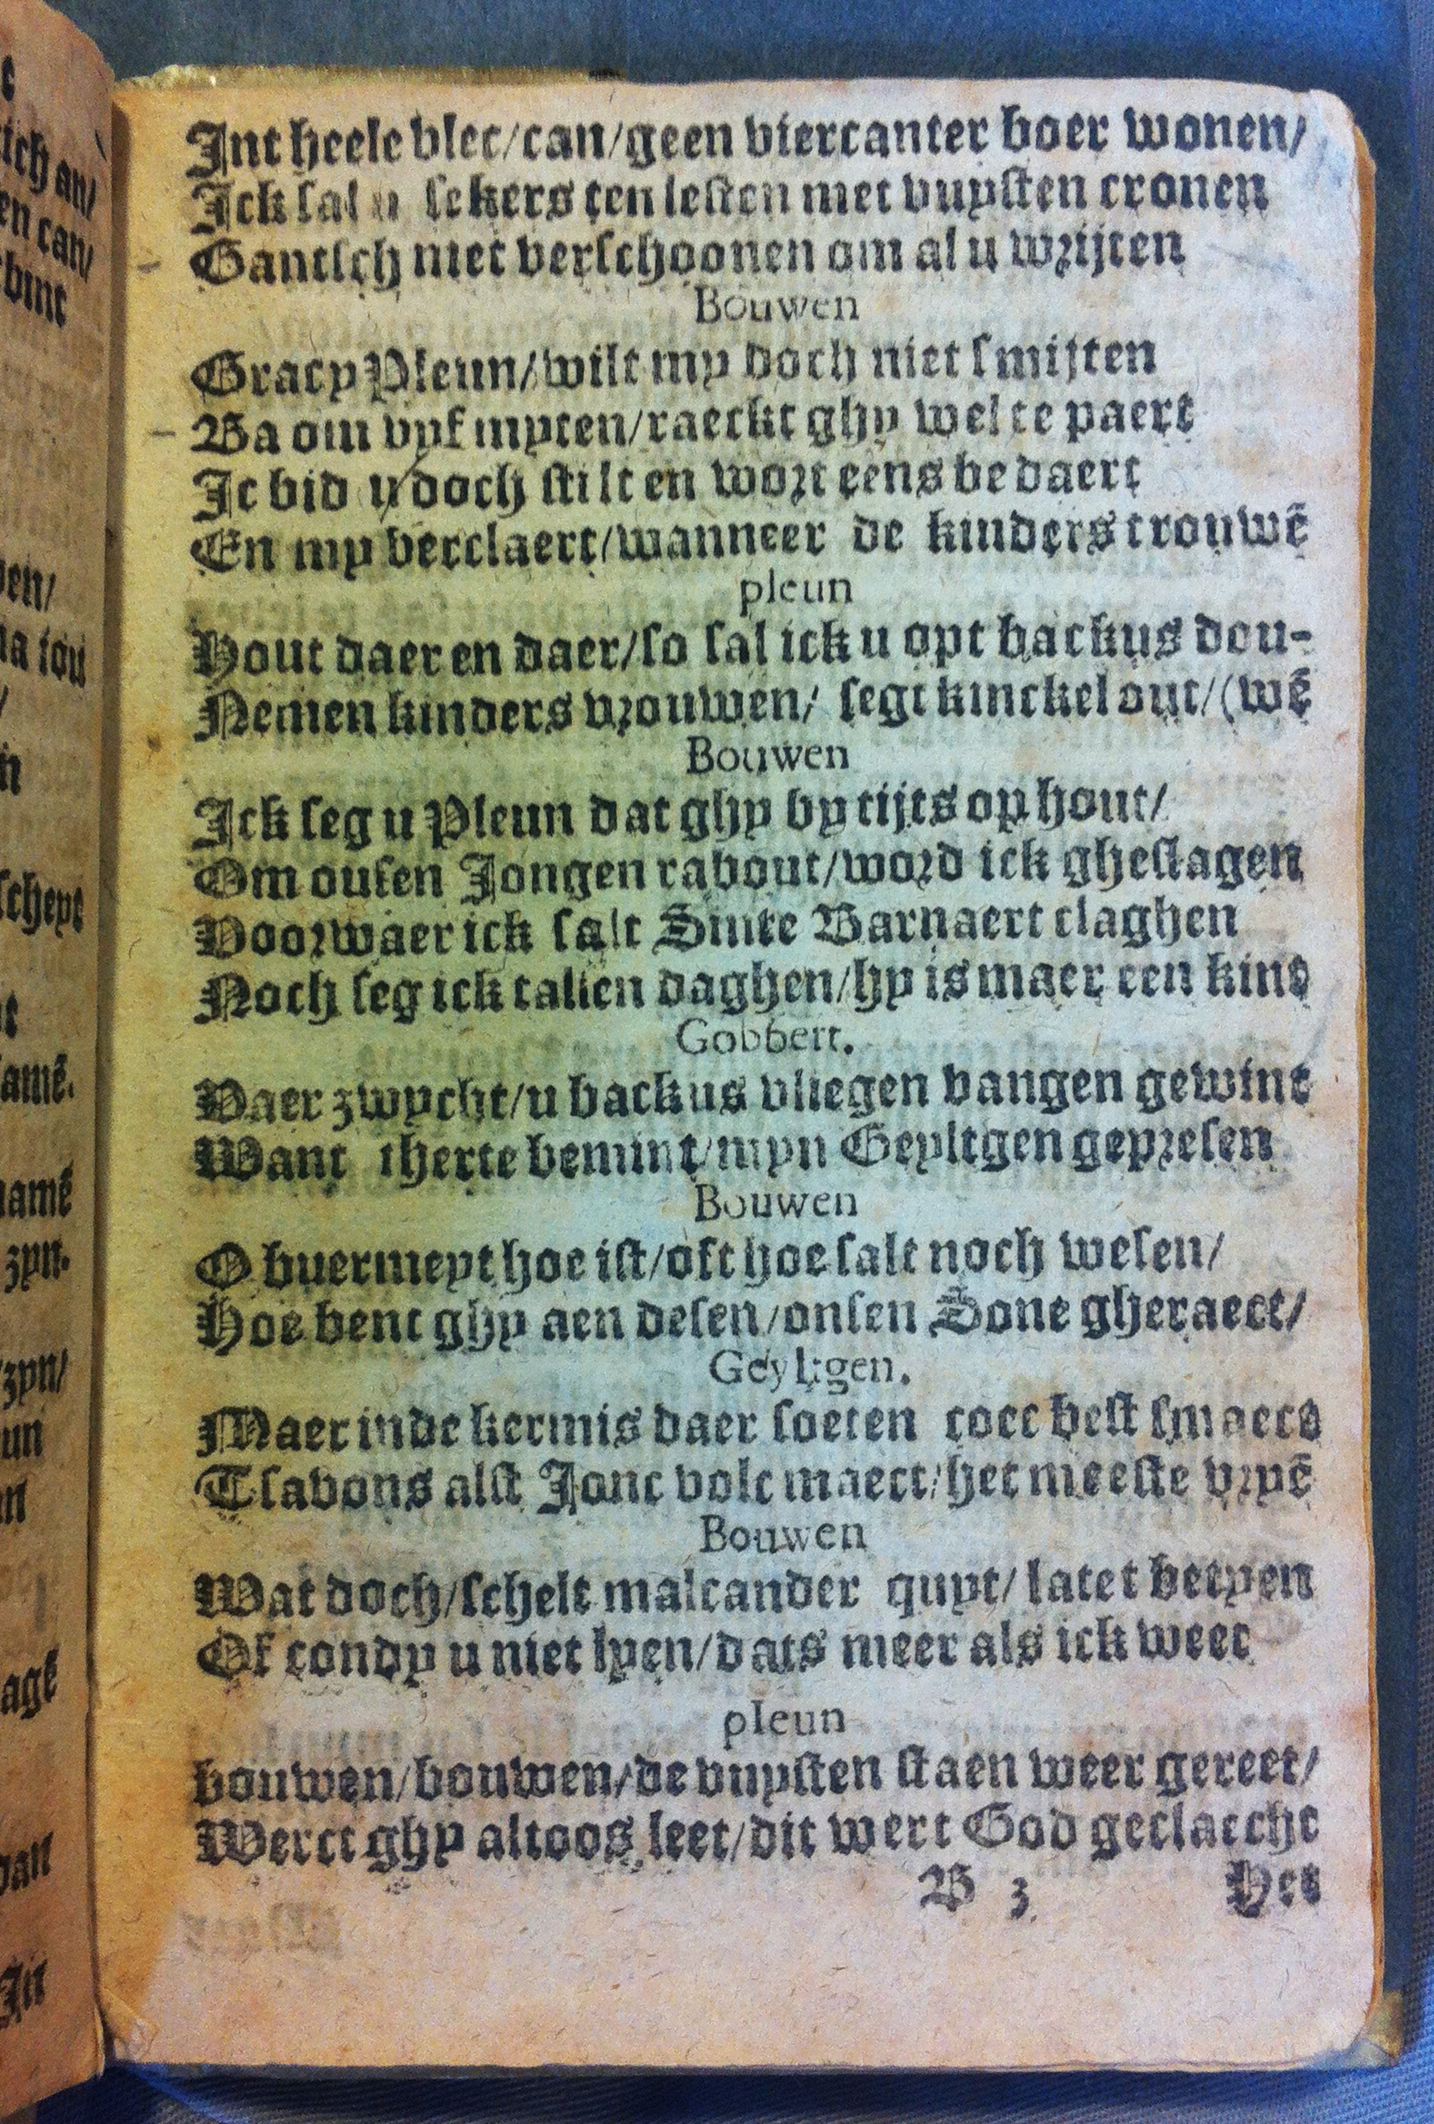 Int heele vlec/can/geen viercanter boer wonen/
Ick sal u sekers ten lesten met vuysten cronen
Gantsch niet verschoonen om al u wrijten
Bouwen
Gracy Pleun/wilt my doch niet smijten
Ba om vyf myten/raeckt ghy wel te paert
Ic bid u doch stilt en wort eens bedaert
En my verclaert/wanneer de kinders trouwē
pleun
Hout daer en daer/so sal ick u opt backus dou-
Nemen kinders vrouwen/ segt kinckel out/(wē
Bouwen
Ick seg u Pleun dat ghy by tijts op hout/
Om ousen Jongen rabout/word ick gheslagen
Voorwaer ick salt Sinte Barnaert claghen
Noch seg ick tallen daghen/hy is maer een kind
Gobbert.
Vaer zwycht/u backus vliegen vangen gewint
Want therte bemint/myn Geyltgen gepresen
Bouwen
O buermeyt hoe ist/oft hoe salt noch wesen/
Hoe bent ghy aen desen/onsen Sone gheraect/
Geyltgen.
Maer inde kermis daer soeten coec best smaect
Tsavons alst Jonc volc maect/het meeste vryē
Bouwen
Wat doch/schelt malcander quyt/latet betyen
Of condy u niet lyen/dats meer als ick weet
pleun
bouwen/bouwen/de vuysten staen weer gereet/
Werct ghy altoos leet/dit wert God geclaecht
B 3 Het
ich an/
en can/
vint
ven/
scheyt
amē.
namē
zyn.
zyn/
un
agē
van
In